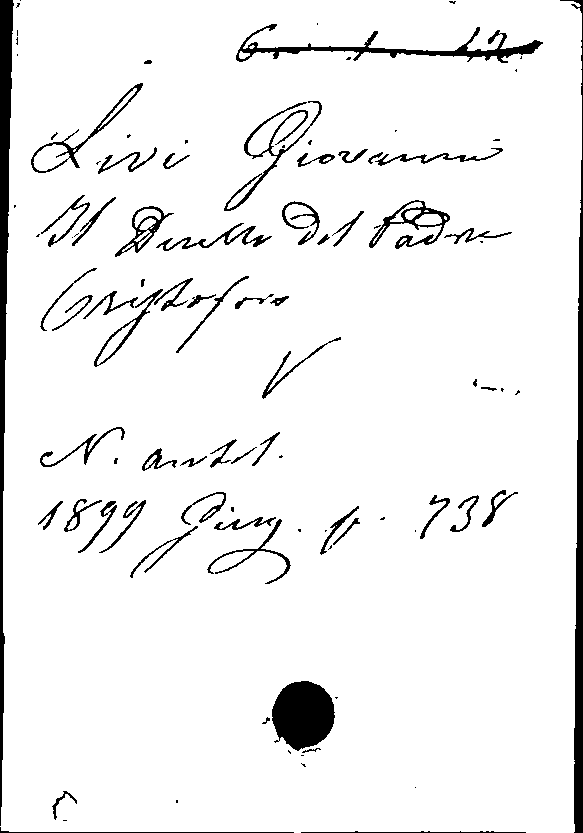 Livi Giovanni
Il Duello del Padre
Cristoforo
V
N. antol.
1899 Giug. p. 738